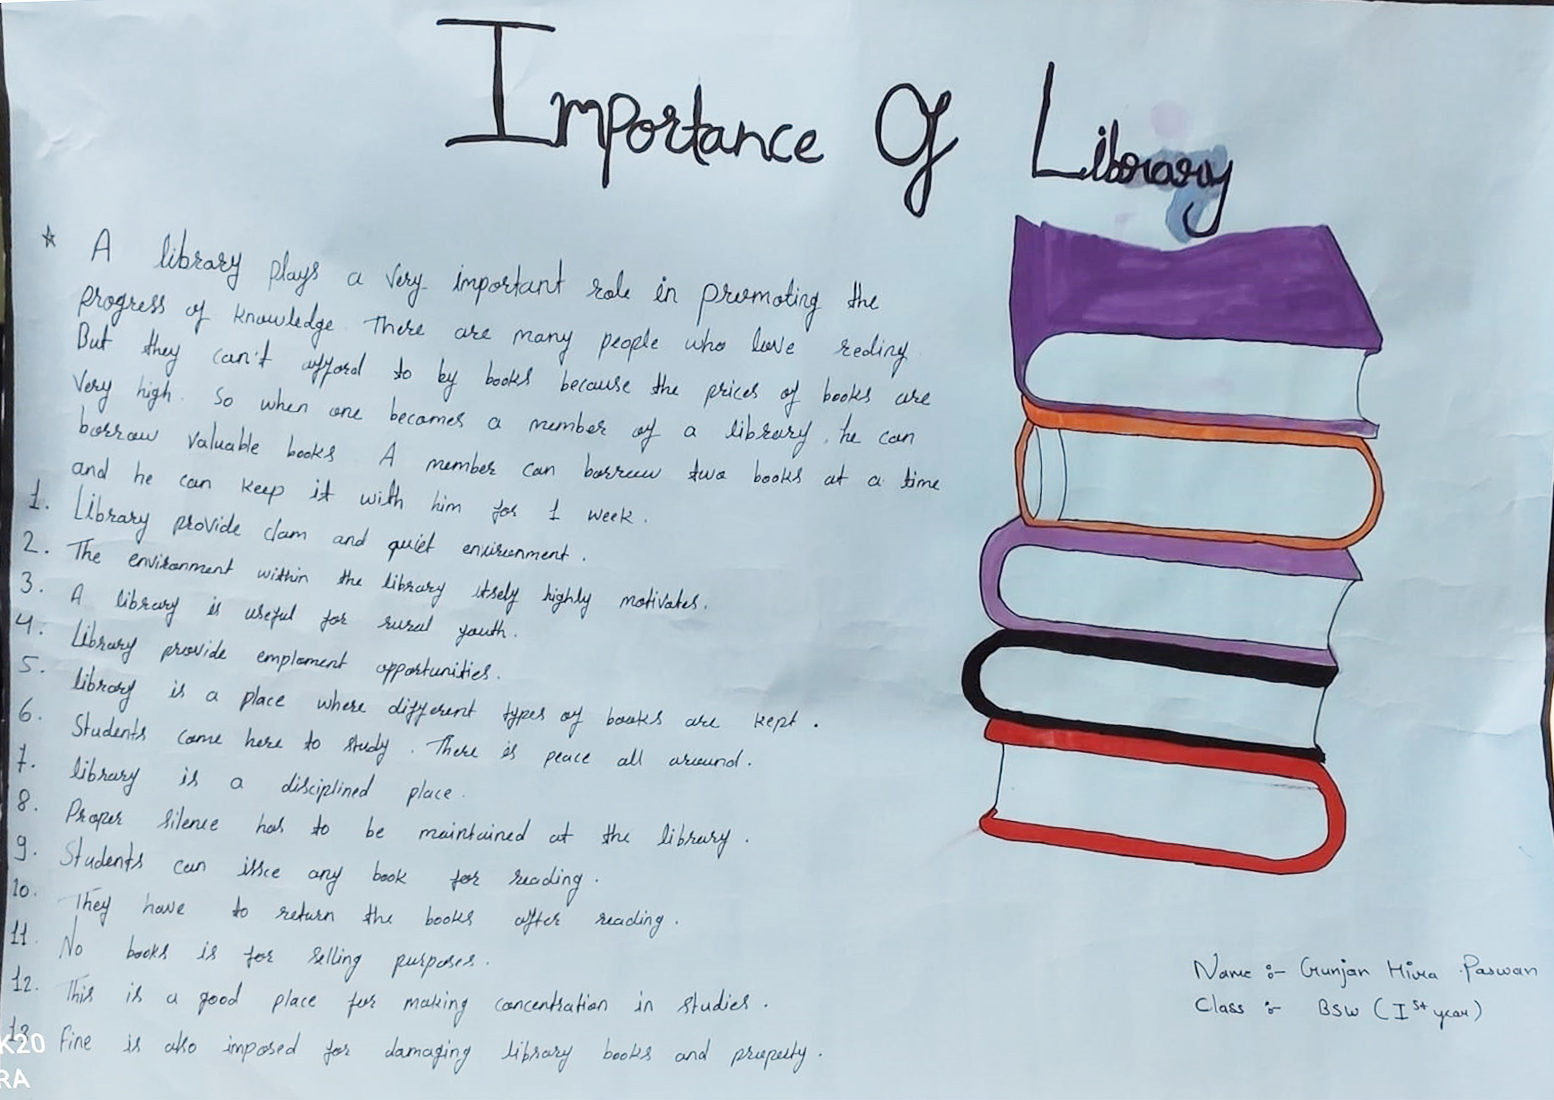 Importance Of Library
* A library plays a very important role in promoting the
progress of knowledge. There are many people who love reding
But they can't afford to by books because the prices of books are
very high. So when one becomes a member of a library, he can
borrow valuable books A member can borrow two books at a time
and he can keep it with him for 1 week.
1. Library provide clam and quiet environment.
2. The environment within the library itsely highly motivates.
3. A library is useful for rural youth.
4. Library provide emploment opportunities.
5. library is a place where different types of books are kept.
6. Students come here to study. There is peace all around.
7. library is a disciplined place.
8. Proper silence has to be maintained at the library.
9. Students can issce any book for reading.
10. They have to return the books after reading.
11. No books is for selling purposes.
12. This is a good place for making concentration in studies.
13 Fine is also imposed for damaging library books and property.
Name :- Gunjan Hira Paswan
Class :- BSW (Ist year)
K20
RA